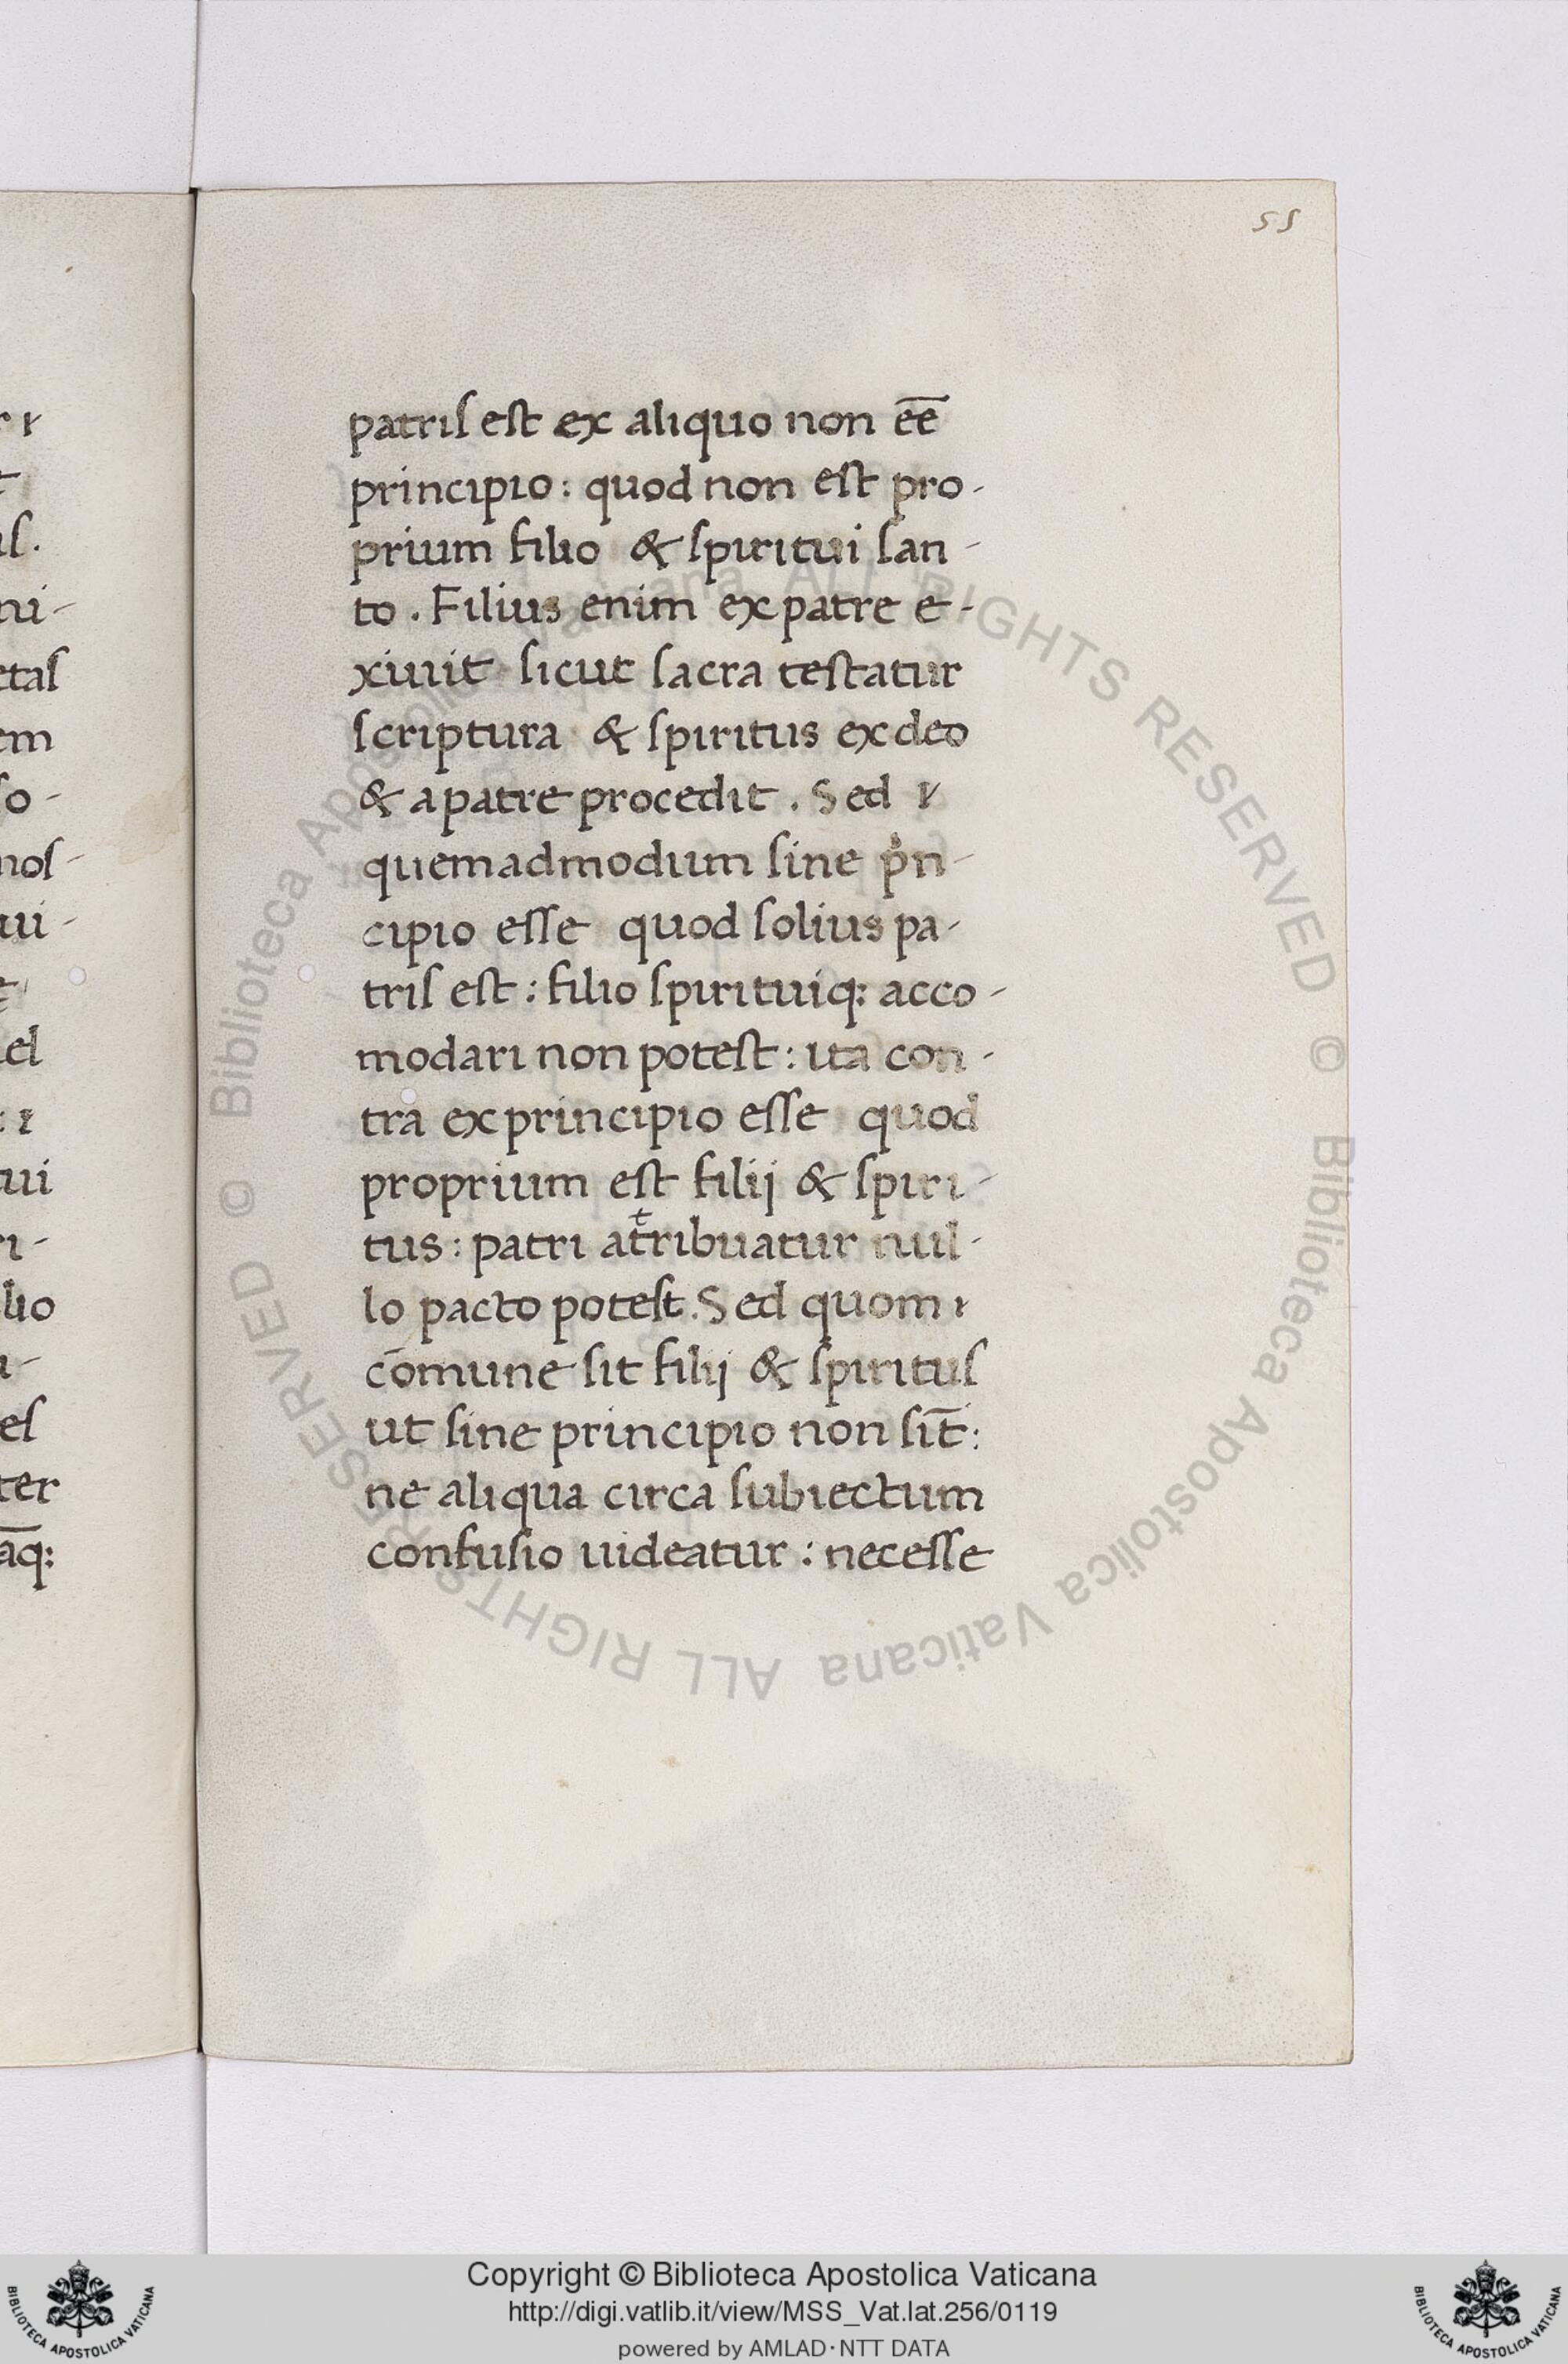 55
patriſ eſt ex aliquo non ēē
principio: quod non eſt pro-
prium filio & ſpiritui ſan-
to. Filius enim ex patre e-
xiuit ſicut ſacra teſtatur
ſcriptura & ſpiritus ex deo
& a patre procedit. Sed
quemadmodum ſine pͥn-
cipio eſſe quod ſolius pa-
triſ eſt: filio ſpirituiq: acco-
modari non poteſt: ita con-
tra ex principio eſſe quod
proprium eſt filij & ſpiri-
tus: patri atͭribuatur nul-
lo pacto poteſt. Sed quom
cōmune ſit filij & ſpirituſ
ut ſine principio non ſit̄:
ne aliqua circa ſubiectum
confuſio uideatur: neceſſe
© Biblioteca Apostolica Vaticana ALL RIGHTS RESERVED
© Biblioteca Apostolica Vaticana ALL RIGHTS RESERVED
Copyright © Biblioteca Apostolica Vaticana
http://digi.vatlib.it/view/MSS_Vat.lat.256/0119
powered by AMLAD·NTT DATA
BIBLIOTECA APOSTOLICA VATICANA
BIBLIOTECA APOSTOLICA VATICANA